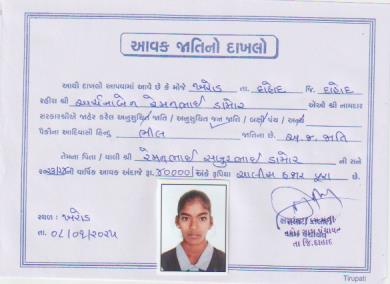 આવક જાતિનો દાખલો
આથી દાખલો આપવામાં આવે છે કે મોજે ખરોડ તા. દાહોદ જિ. દાહોદ
રહીશ શ્રી અર્ચનાબેન રમેશભાઈ ડામોર એઓ શ્રી નામદાર
સરકારશ્રીએ જાહેર કરેલ અનુસુચિત જાતિ / અનુસુચિત જન જાતિ / બક્ષી પંચ / અન્ય
પૈકીના આદિવાસી હિન્દુ ભીલ જાતિના છે. અ.જ. જાતિ
તેમના પિતા / વાલી શ્રી રમેશભાઈ ડામોર ની સને
ની વાર્ષિક આવક અંદાજે રૂા. ૪૦૦૦૦/ અંકે રૂપિયા ચાલીસ હજાર પુરા છે.
સ્થળ : ખરોડ
તા.
તા જિ.દાહોદ
Tirupati